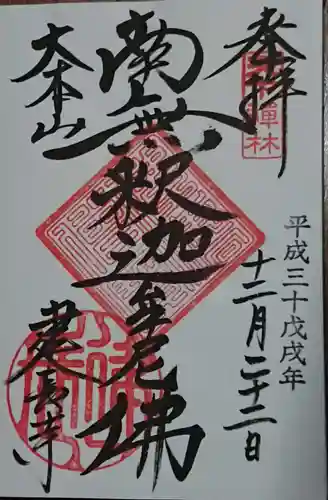 奉拝
平成三十戊戌年
十二月二十二日
南無釈迦牟尼佛
大本山
建長寺